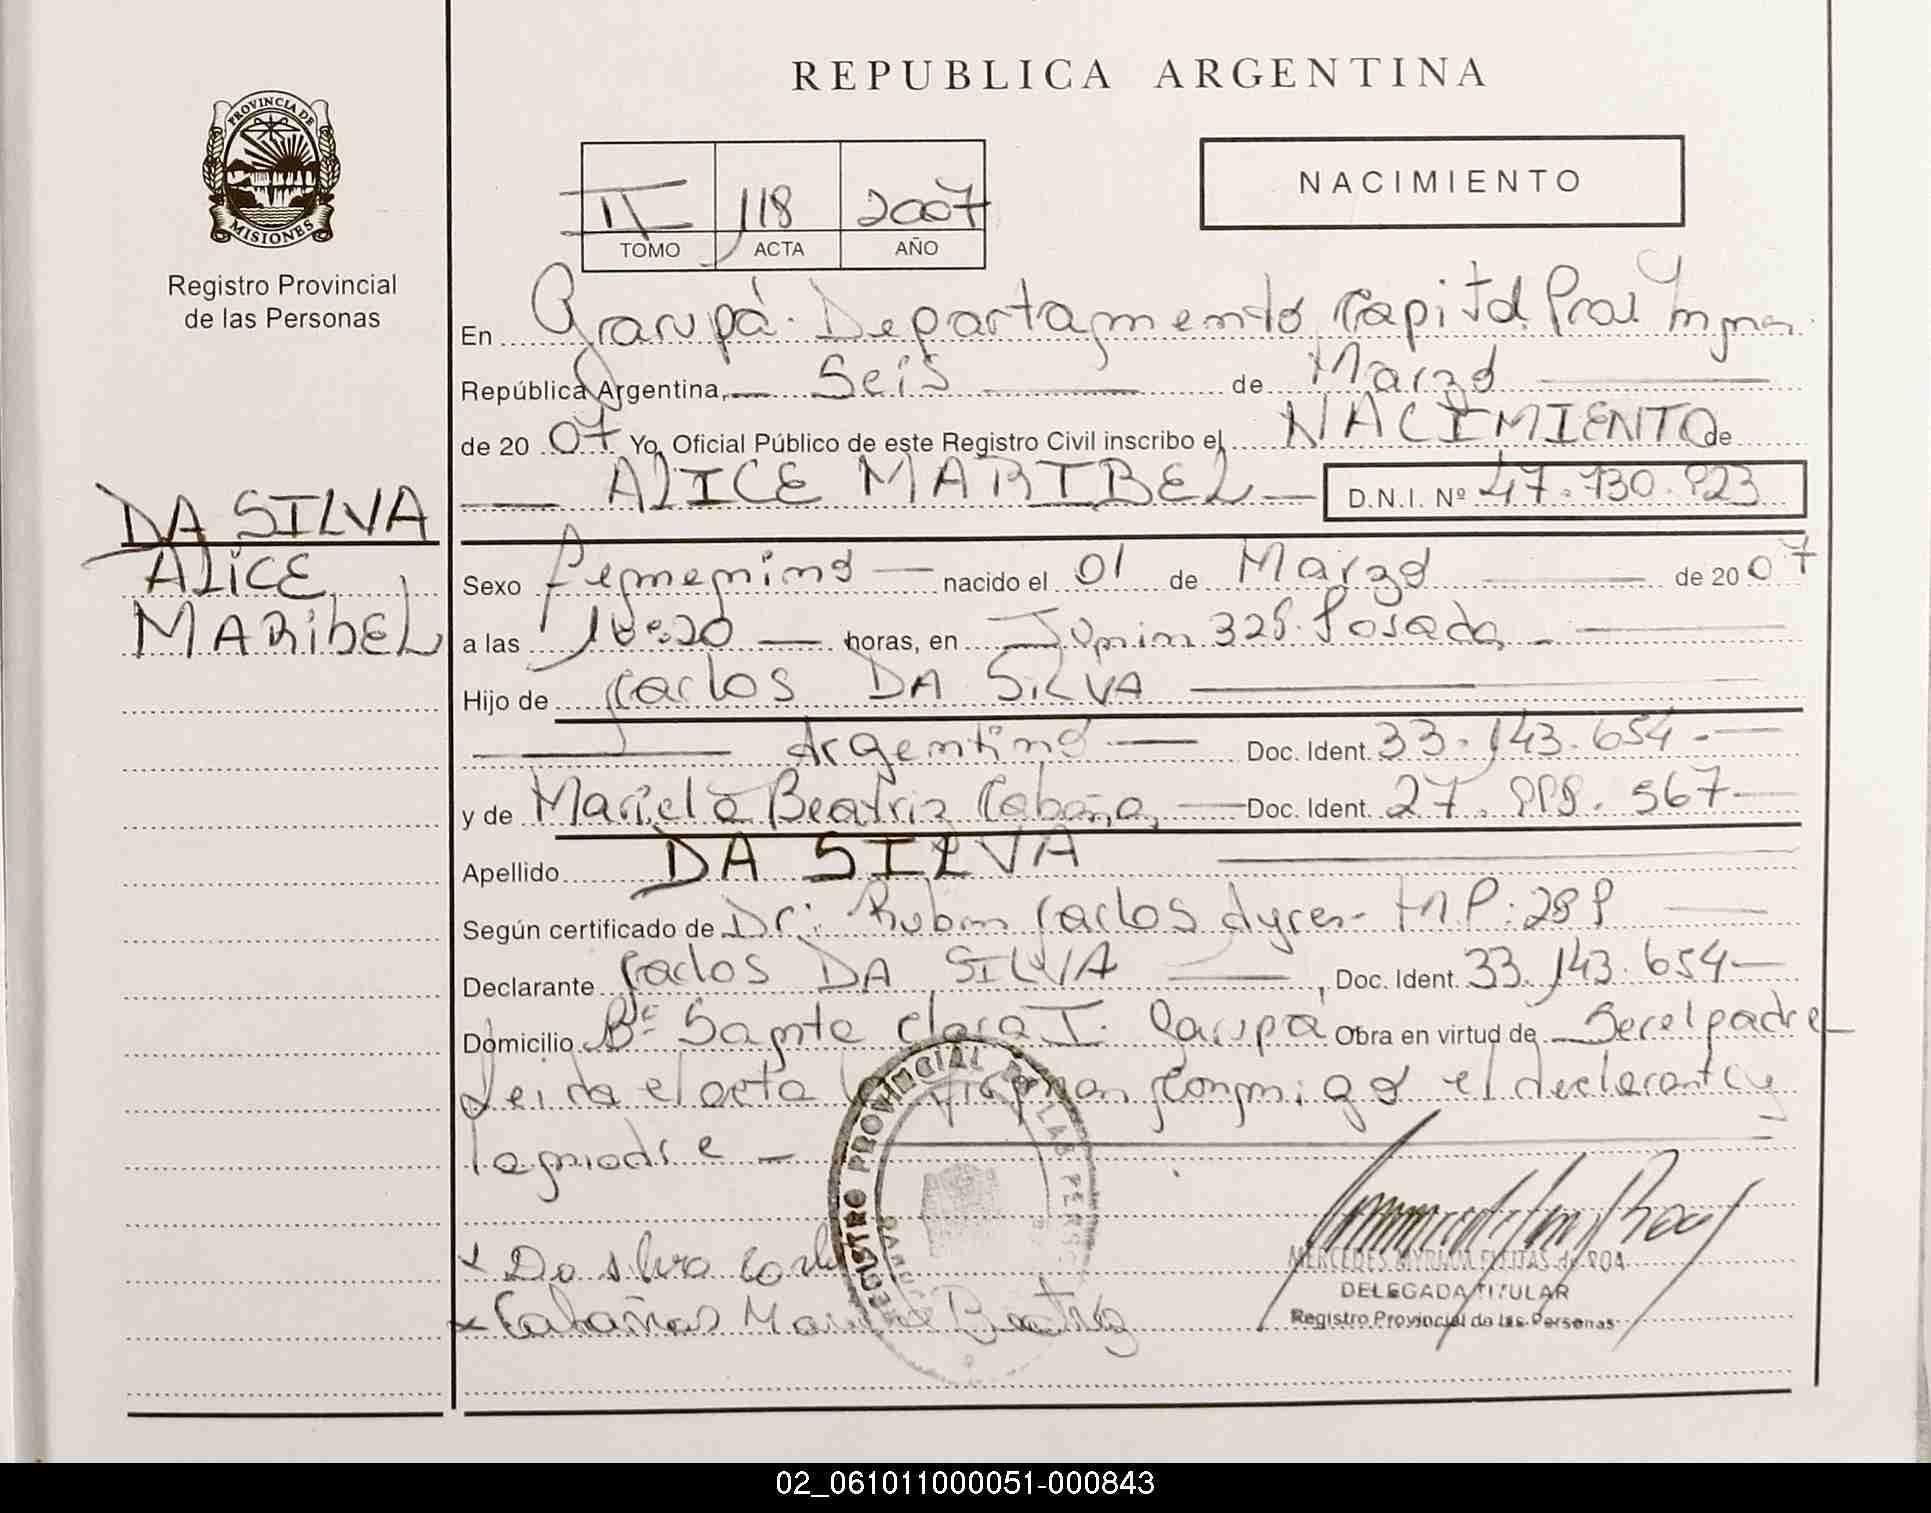 REPUBLICA ARGENTINA
PROVINCIA DE
MISIONES
Registro Provincial
de las Personas
II 118 2007
TOMO ACTA AÑO
NACIMIENTO
En Garupá Departamento Capital
República Argentina, Seis de Marzo
de 20 07 Yo, Oficial Público de este Registro Civil inscribo el NACIMIENTO de
ALICE MARIBEL D.N.I. Nº
DA SILVA
ALICE
MARIBEL
Sexo Femenino nacido el 01 de Marzo de 20 07
a las horas, en Junin 325. Posadas
Hijo de Carlos DA SILVA
Argentino Doc. Ident. 33.143.654.
y de Mariela Beatriz Cabaña Doc. Ident. 27. 567
Apellido DA SILVA
Según certificado de Dr: Ruben Carlos Ayres M.P:
Declarante Carlos DA SILVA, Doc. Ident. 33.143.654
Domicilio Bº Santa Clara I. Garupá Obra en virtud de Ser el padre
Leida el acta la firman conmigo el declarante y
la madre
REGISTRO PROVINCIAL DE LAS PERSONAS
x Da silva Carlos
x Cabañas Mariela Beatriz
MERCEDES MYRIAM FLEITAS de ROA
DELEGADA TITULAR
Registro Provincial de las Personas
02_061011000051-000843